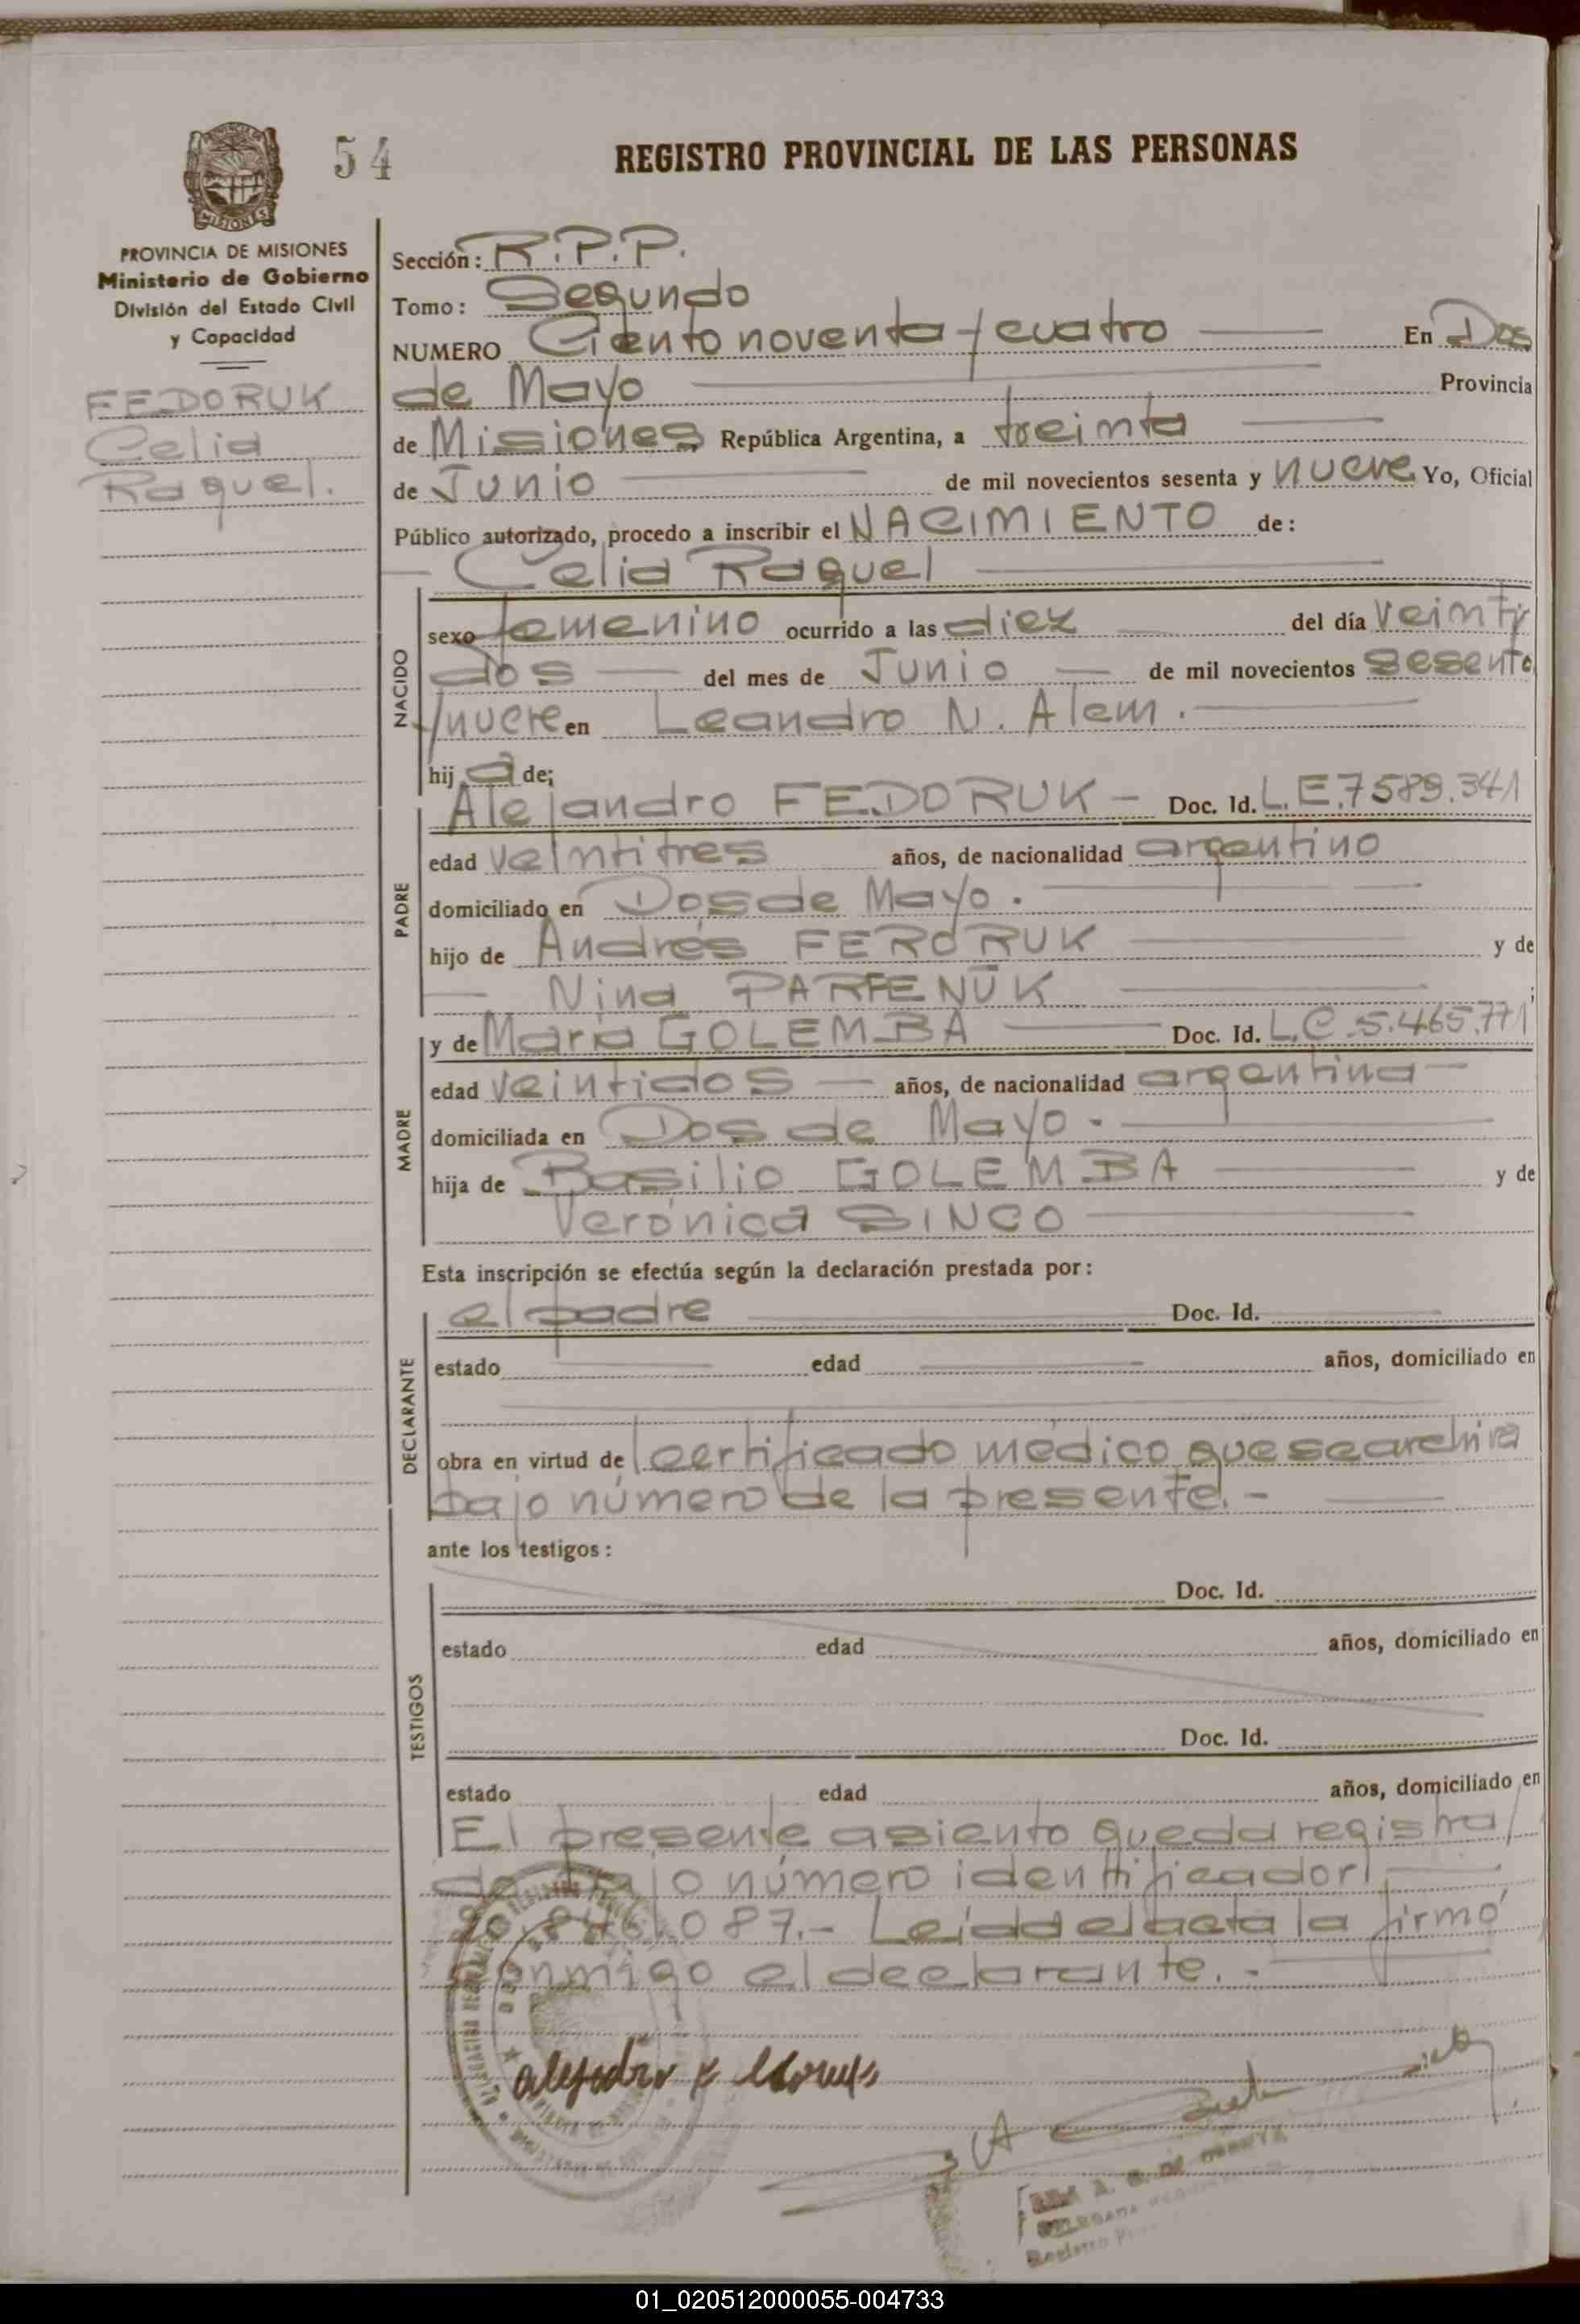 54
REGISTRO PROVINCIAL DE LAS PERSONAS
PROVINCIA DE MISIONES
Ministerio de Gobierno
División del Estado Civil
y Capacidad
FEDORUK
Celia
Raquel.
Sección: R.P.P.
Tomo: Segundo
NUMERO Ciento noventa y cuatro En Dos
de Mayo Provincia
de Misiones República Argentina, a treinta
de Junio de mil novecientos sesenta y nueve Yo, Oficial
Público autorizado, procedo a inscribir el NACIMIENTO de:
Celia Raquel
NACIDO
sexo femenino ocurrido a las diez del día veinti
dos del mes de Junio de mil novecientos sesenta
y nueve en Leandro N. Alem.
hij a de;
PADRE
Alejandro FEDORUK - Doc. Id. L.E.7589.341
edad veintitres años, de nacionalidad argentino
domiciliado en Dos de Mayo.
hijo de Andrés FERORUK y de
Nina PARFENUK ;
MADRE
y de María GOLEMBA Doc. Id. L.C.5.465.771
edad veintidos años, de nacionalidad argentina
domiciliada en Dos de Mayo.
hija de Basilio GOLEMBA y de
Verónica SINCO
Esta inscripción se efectúa según la declaración prestada por:
DECLARANTE
el padre Doc. Id.
estado edad años, domiciliado en
obra en virtud de certificado médico que se archiva
bajo número de la presente.-
ante los testigos:
TESTIGOS
Doc. Id.
estado edad años, domiciliado en
Doc. Id.
estado edad años, domiciliado en
El presente asiento queda registra
do bajo número identificador
087.- Leída el acta la firmó
conmigo el declarante.-
01_020512000055-004733